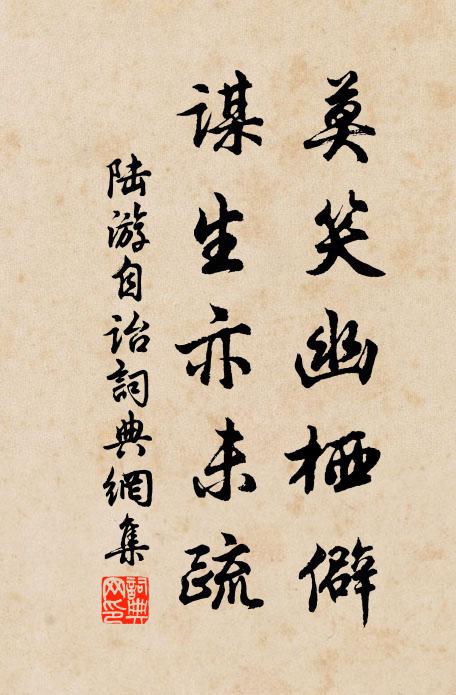 莫笑幽栖僻
謀生亦未疏
陆游自詒詞典網集
詞典網印